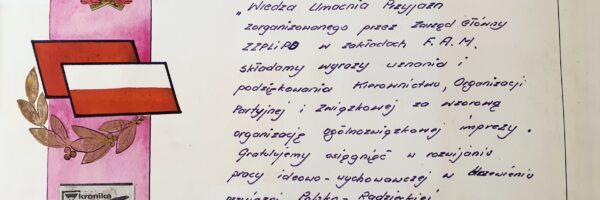 „Wiedza Umacnia Przyjaźń
zorganizowanego przez Zarząd Główny
ZZPLiPD w zakładach F.A.M.
składamy wyrazy uznania i
podziękowania Kierownictwu, Organizacji
Partyjnej i Związkowej za wzorową
organizację ogólnozwiązkowej imprezy.
Gratulujemy osiągnięć w rozwijaniu
pracy ideowo-wychowawczej w krzewieniu
przyjaźni Polsko-Radzieckiej
kronika